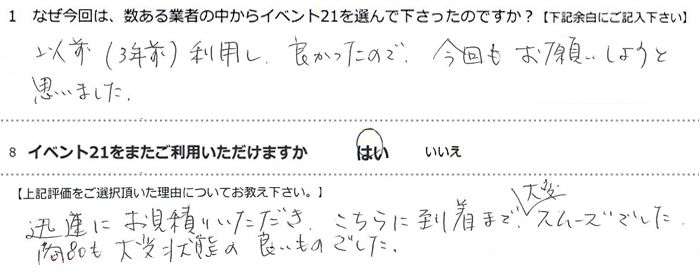 1 なぜ今回は、数ある業者の中からイベント21を選んで下さったのですか？【下記余白にご記入下さい】
以前(3年前)利用し、良かったので、今回もお願いしようと
思いました。
8 イベント21をまたご利用いただけますか はい いいえ
【上記評価をご選択頂いた理由についてお教え下さい。】
迅速にお見積りいただき、こちらに到着まで、大変スムーズでした
商品も大変状態の良いものでした。